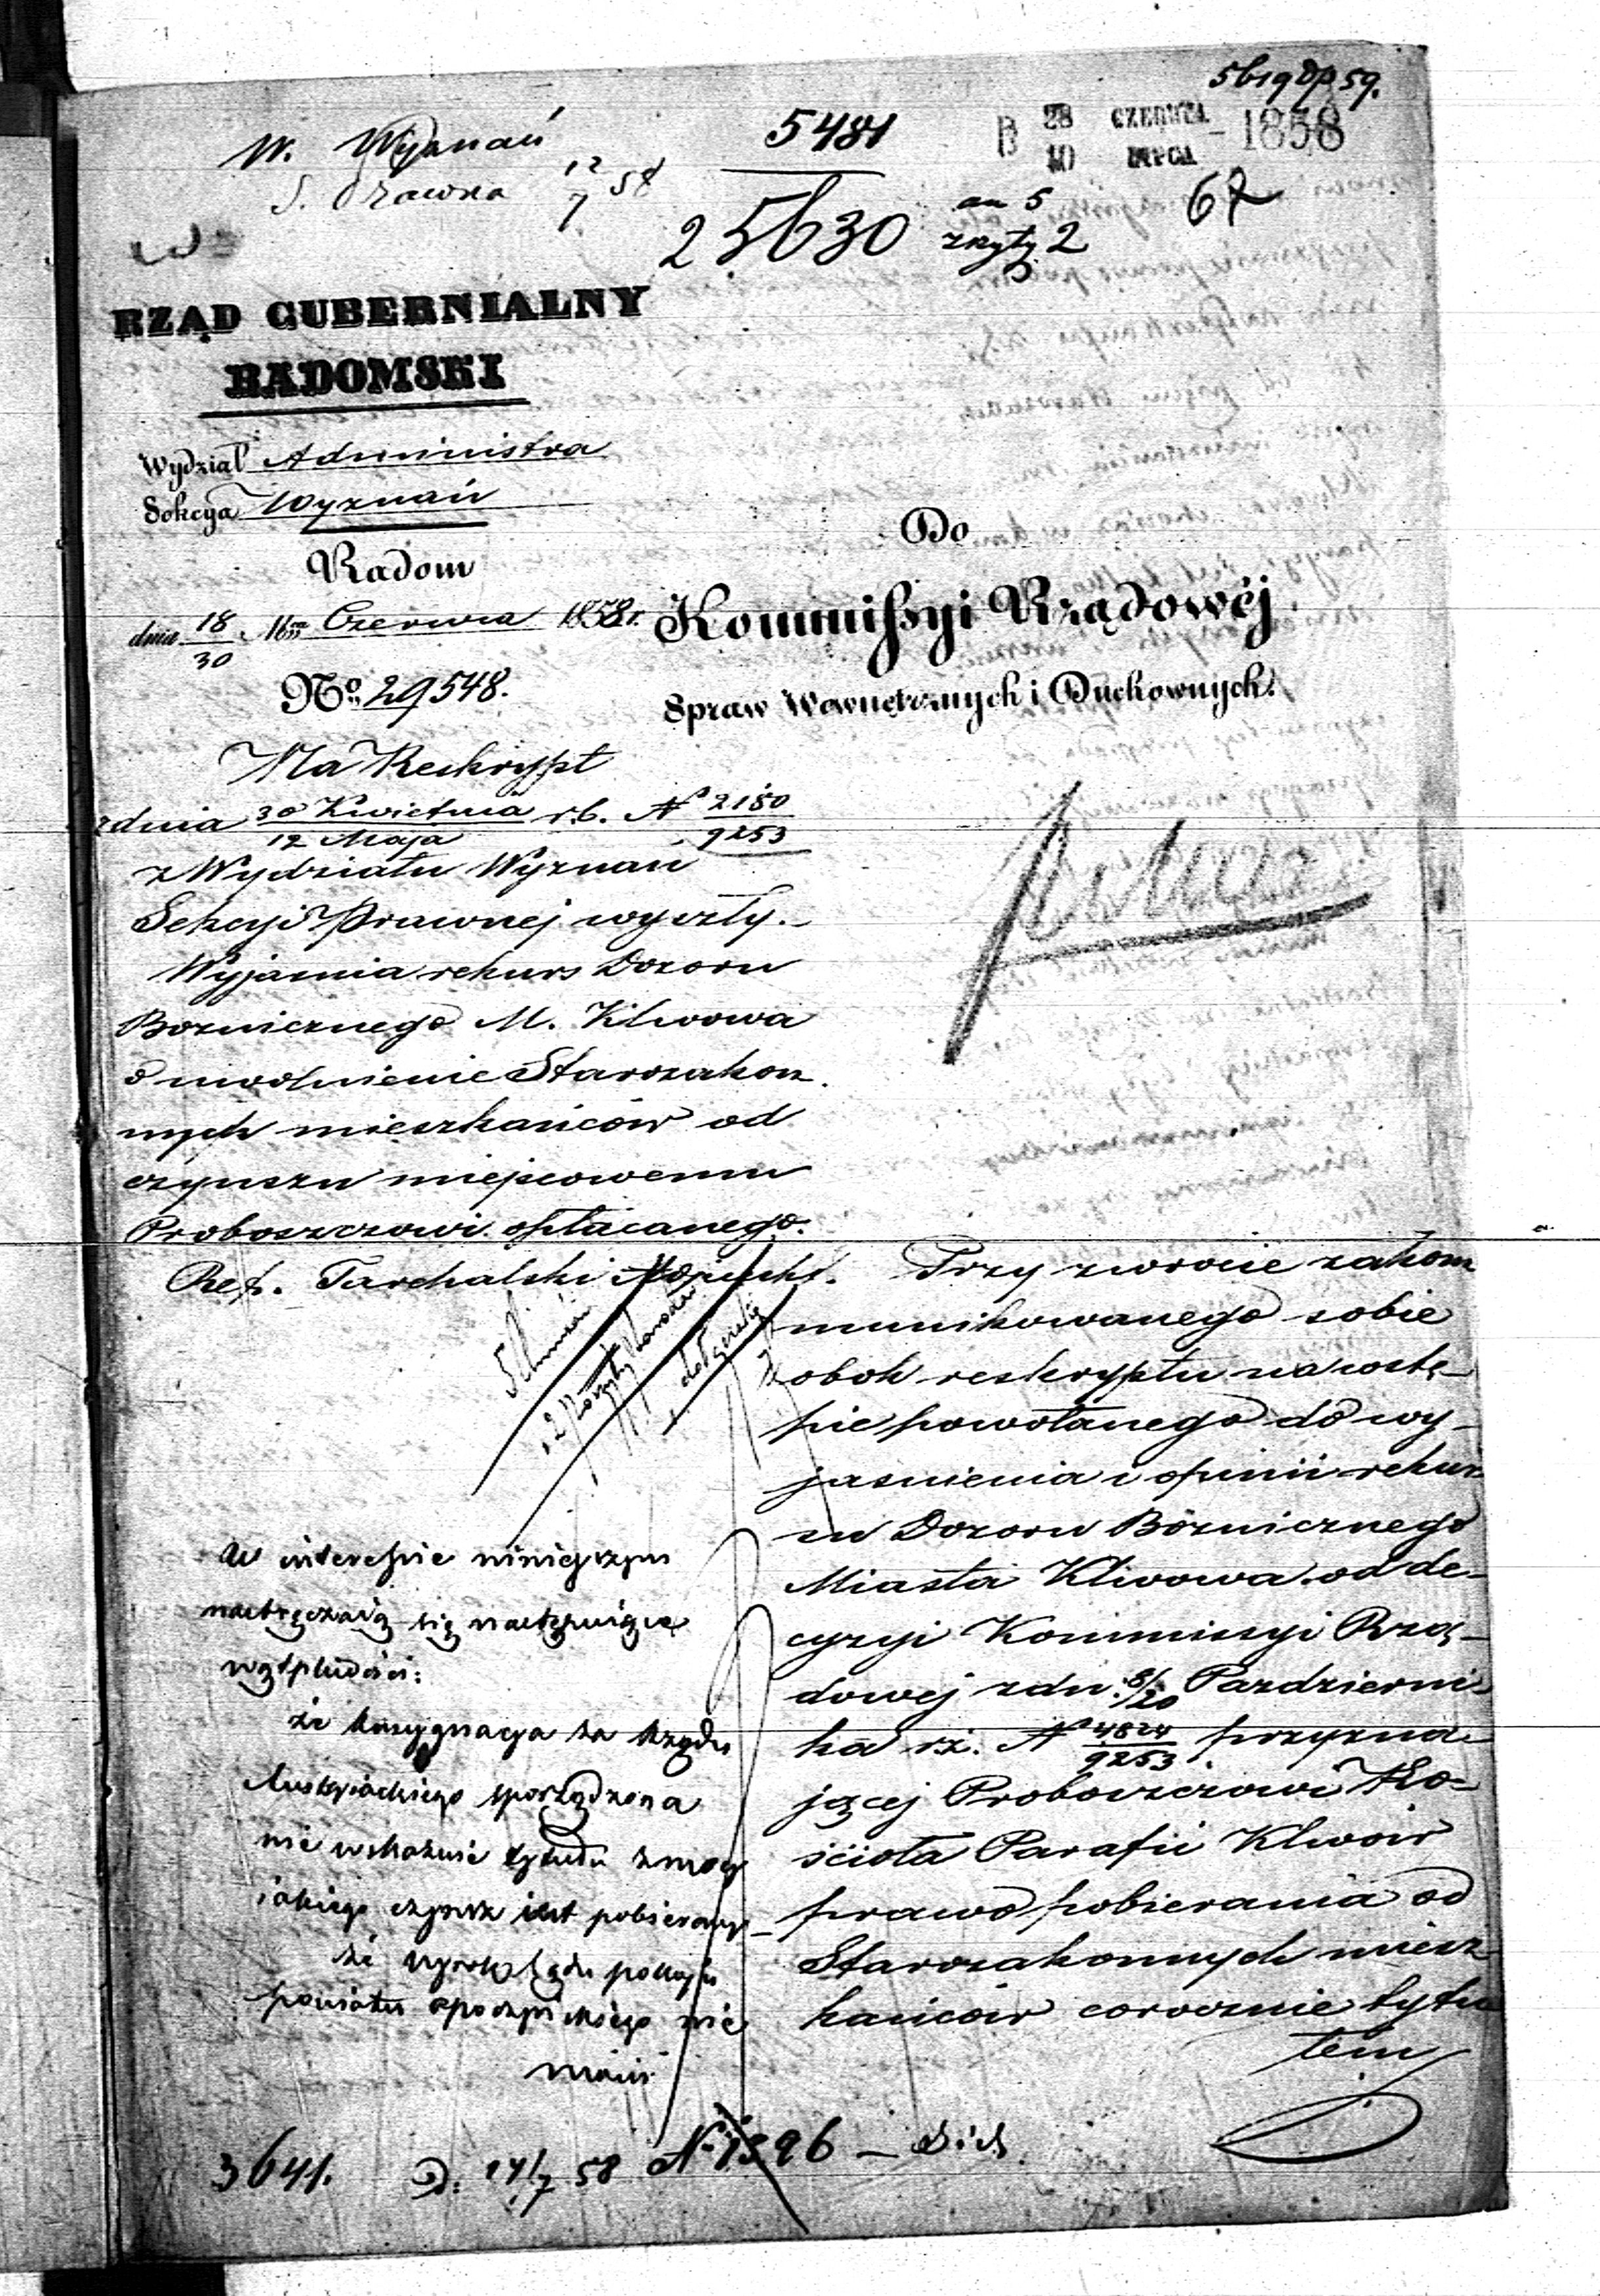 W. Wyznań
S. Prawna 12/7 58
5481
25630
an 5
zszyty 2
B 28 CZERWCA
10 LIPCA - 1858
67
RZĄD GUBERNIALNY
RADOMSKI
Wydział Administra
Sekcya Wyznań
Radom
dnia 18/30 Mca Czerwca 1858 r.
No 29548.
Do
Kommissyi Rządowéj
Spraw Wewnętrznych i Duchownych.
Na Reskrypt
z dnia 30 Kwietnia/12 Maja r.b. N 2180/9253
z Wydziału Wyznań
Sekcyi Prawnej wyszły.
Wyjaśnia rekurs Dozoru
Bozniczneg̃o M. Klwowa
o uwolnienie Starozakon
nych mieszkańców od
czynszu miejscowemu
Proboszczowi opłacanego.
Ref. Tarchalski
Przy zwrocie zakom
munikowanego sobie
obok reskryptu na wstę-
pie powołanego do wy-
jasnienia i opinii rekur
su Dozoru Bóżnicznego
Miasta Klwowa od de-
cyzyi Kommissyi Rzą-
dowej z dn. 8/20 Pazdzierni
ka r.z. N 4824/9253 przyzna-
jącej Proboszczowi Ko-
ścioła Parafii Klwów
prawo pobierania od
Starozakonnych miesz
kańców corocznie tytu
łem
W interesie niniejszym
nastręczają się następujące
wątpliwości:
że konsygnacya za Rządu
Austryackiego sporządzona
nie wskazuie tytułu z mocy
iakiego czynsz iest pobierany
że wyrok Sądu pokoju
powiatu opoczyńskiego nie
3641.
D: 14/7 58
N 1396